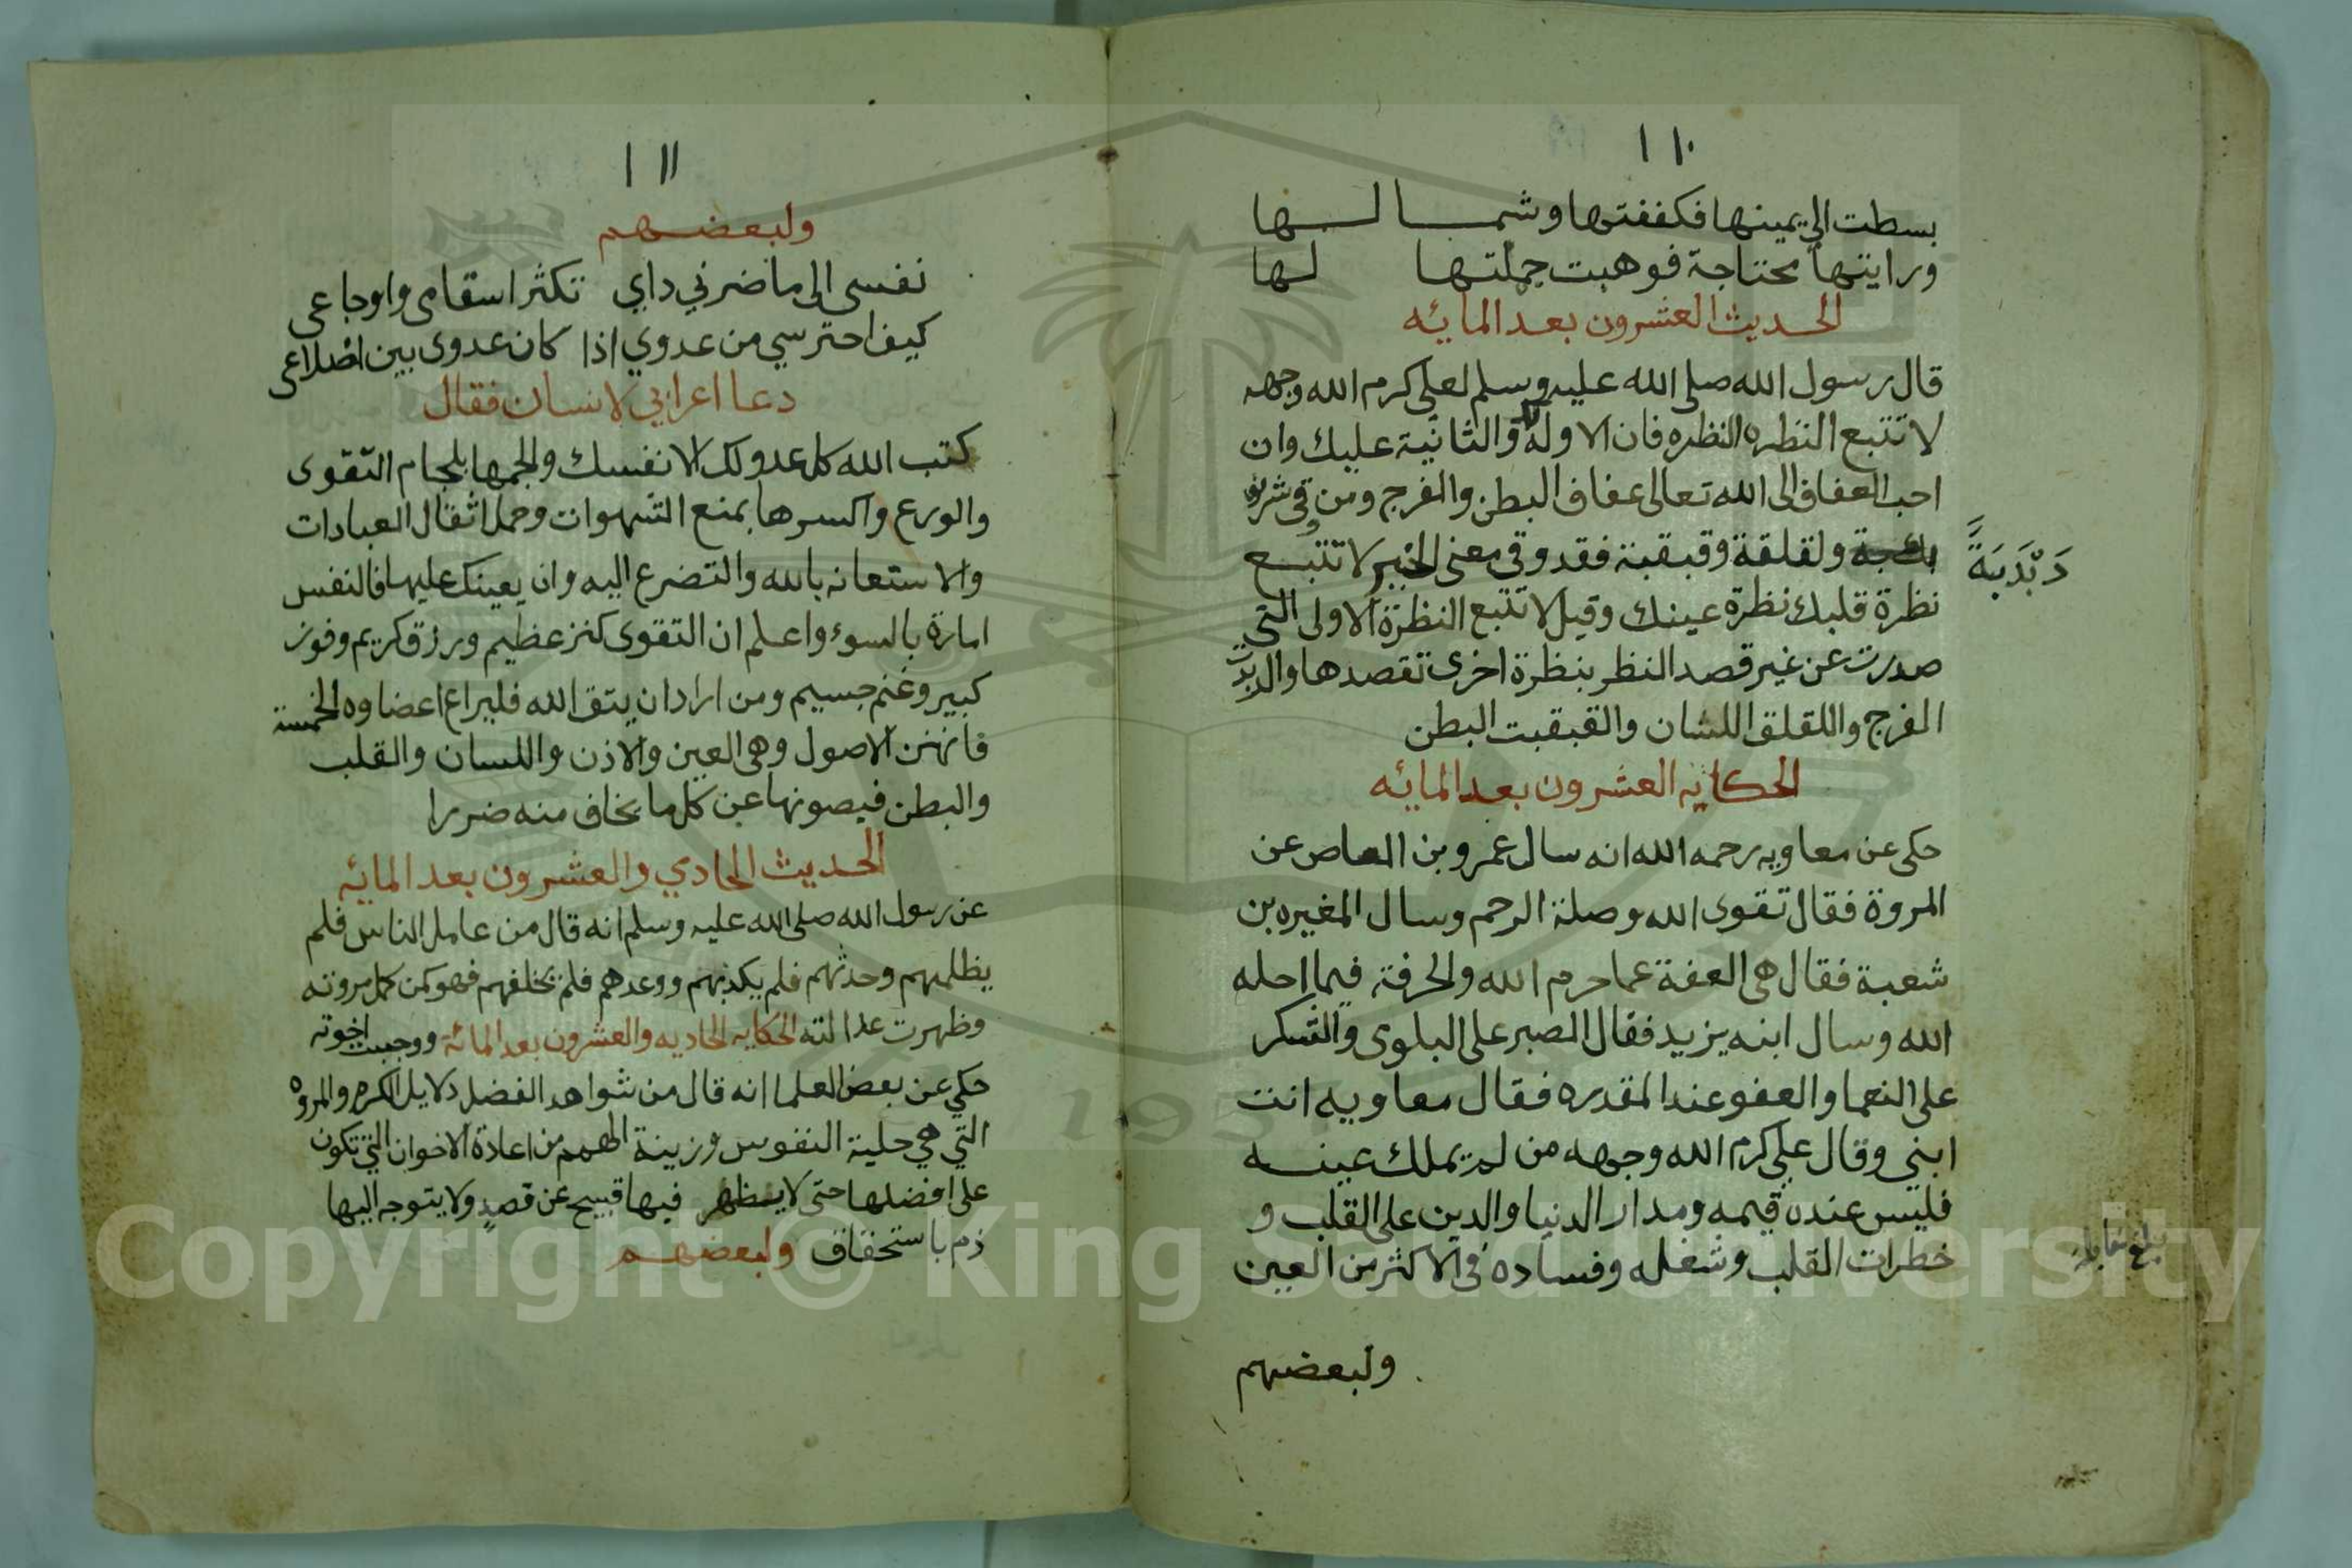 ١١٠
بسطت الي يمينها فكففتها وشمالها
ورايتها محتاجة فوهبت جملتها لها
الحديث العشرون بعد المائه
قال رسول الله صلى الله عليه وسلم لعلي كرم الله وجهه
لا تتبع النظره النظره فان الاوله لك والثانية عليك وان
احب العفاف الى الله تعالى عفاف البطن والفرج ومن وقي شر
ولقلقة وقبقبة فقد وقي معنى الخبر لا تتبع
دَبْدَبَةً
نظرة قلبك نظرة عينك وقيل لا تتبع النظرة الاولى التي
صدرت عن غير قصد النظر بنظرة اخرى تقصدها
الفرج واللقلق اللسان والقبقبت البطن
الحكايه العشرون بعد المائه
حكى عن معاويه رحمه الله انه سال عمرو بن العاص عن
المروة فقال تقوى الله وصلة الرحم وسال المغيره بن
شعبة فقال هى العفة عما حرم الله والحرفة فيما احله
الله وسال ابنه يزيد فقال الصبر على البلوى والشكر
على النعما والعفو عند المقدره فقال معاويه انت
ابني وقال علي كرم الله وجهه من لم يملك عينه
فليس عنده قيمه ومدار الدنيا والدين على القلب و
خطرات القلب وشغله وفساده في الاكثر من العين
بلغ مقابله
ولبعضهم
١١١
ولبعضهم
نفسى الى ما ضرني داي تكثر اسقامى واوجاعى
كيف احترسي من عدوي اذا كان عدوى بين اضلاعى
دعا اعرابي لانسان فقال
كتب الله كل عدو لك الا نفسك والجمها بلجام التقوى
والورع واكسرها بمنع الشهوات وحمل اثقال العبادات
والاستعانه بالله والتضرع اليه وان يعينك عليها فالنفس
امارة بالسوء واعلم ان التقوى كنز عظيم ورزق كريم وفوز
كبير وغنم جسيم ومن اراد ان يتق الله فليراع اعضاوه الخمسة
فانهن الاصول وهى العين والاذن واللسان والقلب
والبطن فيصونها عن كل ما يخاف منه ضررا
الحديث الحادي والعشرون بعد المائه
عن رسول الله صلى الله عليه وسلم انه قال من عامل الناس فلم
يظلمهم وحدثهم فلم يكذبهم ووعدهم فلم يخلفهم فهو ممن كمل مروته
وظهرت عدالته الحكايه الحاديه والعشرون بعد المائة ووجبت اخوته
حكي عن بعض العلما انه قال من شواهد الفضل ودلايل الكرم والمروه
التي هي حلية النفوس وزينة الهمم من اعادة الاخوان التي تكون
على افضلها حتى لا يظهر فيها قبيح عن قصدٍ ولا يتوجه اليها
ذم باستحقاق ولبعضهم
Copyright © King Saud University
1957